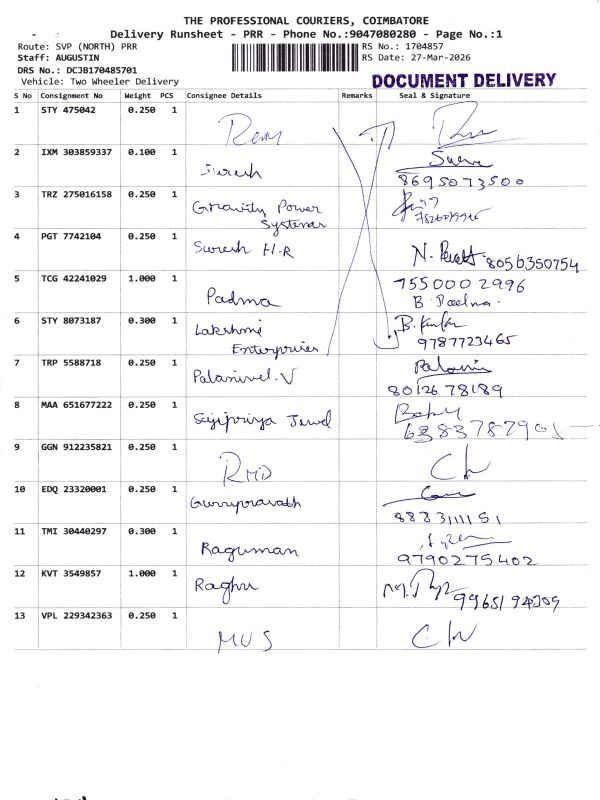 THE PROFESSIONAL COURIERS, COIMBATORE
Delivery Runsheet - PRR - Phone No.:9047080280 - Page No.:1
Route: SVP (NORTH) PRR RS No.: 1704857
Staff: AUGUSTIN RS Date: 27-Mar-2026
DRS No.: DCJB170485701
Vehicle: Two Wheeler Delivery DOCUMENT DELIVERY
S No Consignment No Weight PCS Consignee Details Remarks Seal & Signature
1 STY 475042 0.250 1
2 IXM 303859337 0.100 1 Suresh
8695073500
3 TRZ 275016158 0.250 1 Gravity Power
Systems
4 PGT 7742104 0.250 1 Suresh H.R
8056350754
5 TCG 42241029 1.000 1 Padma 7550002996
B. Padma.
6 STY 8073187 0.300 1 Lakshmi
Enterprises 9787723465
7 TRP 5588718 0.250 1 Palanivel.V
8012678189
8 MAA 651677222 0.250 1 Jewel
9 GGN 912235821 0.250 1 RMD
10 EDQ 23320001 0.250 1
11 TMI 30440297 0.300 1 Raguman
9790275402
12 KVT 3549857 1.000 1 Raghu
13 VPL 229342363 0.250 1 MVS